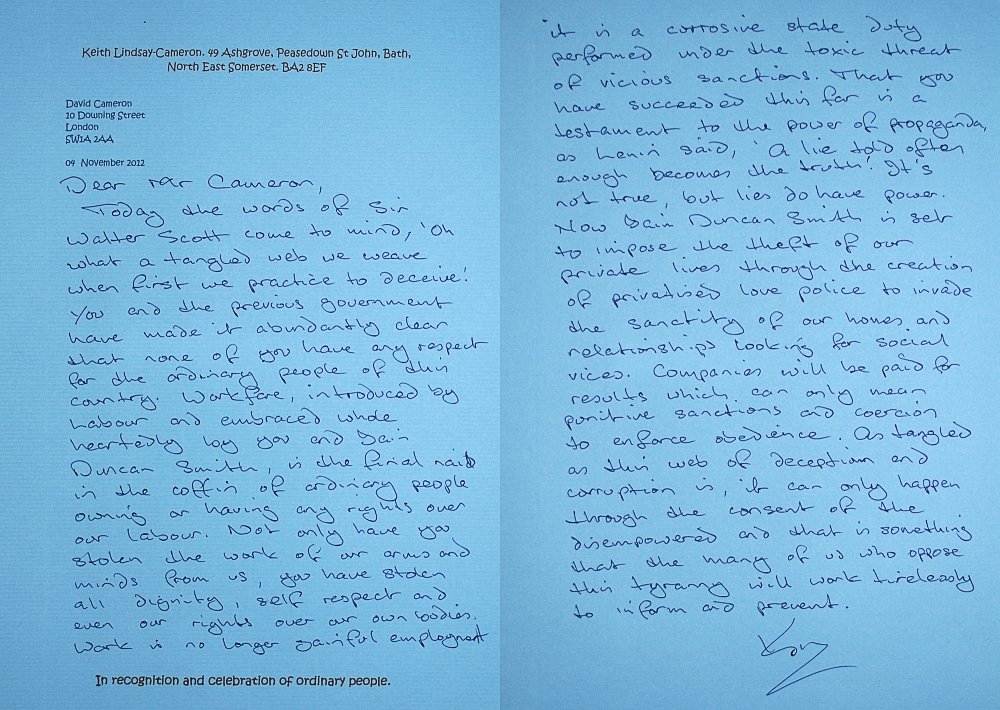 Keith Lindsay-Cameron. 49 Ashgrove, Peasedown St John, Bath,
North East Somerset. BA2 8EF
David Cameron
10 Downing Street
London
SW1A 2AA
04 November 2012
Dear Mr Cameron,
Today the words of Sir
Walter Scott come to mind, 'Oh
what a tangled web we weave
when first we practice to deceive!'
You and the previous government
have made it abundantly clear
that none of you have any respect
for the ordinary people of this
country. Workfare, introduced by
Labour and embraced whole
heartedly by you and Iain
Duncan Smith, is the final nail
in the coffin of ordinary people
owning or having any rights over
our labour. Not only have you
stolen the work of our arms and
minds from us, you have stolen
all dignity, self respect and
even our rights over our own bodies.
Work is no longer gainful employment
In recognition and celebration of ordinary people.
it is a corrosive state duty
performed under the toxic threat
of vicious sanctions. That you
have succeeded this far is a
testament to the power of propaganda,
as Lenin said, 'A lie told often
enough becomes the truth.' It's
not true, but lies do have power.
Now Iain Duncan Smith is set
to impose the theft of our
private lives through the creation
of privatised love police to invade
the sanctity of our homes and
relationships looking for social
vices. Companies will be paid for
results which can only mean
punitive sanctions and coercion
to enforce obedience. As tangled
as this web of deception and
corruption is, it can only happen
through the consent of the
disempowered and that is something
that the many of us who oppose
this tyranny will work tirelessly
to inform and prevent.